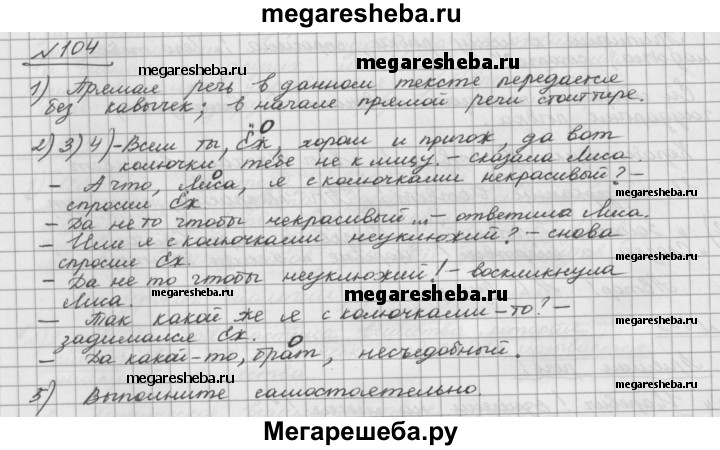 megaresheba.ru
№104
megaresheba.ru
1) Прямая речь в данном тексте передается
без кавычек; в начале прямой речи стоит тире.
megaresheba.ru
megaresheba.ru
2) 3) 4) - Всем ты, Ёж, хорош и пригож, да вот
колючки тебе не к лицу. - сказала Лиса.
- А что, Лиса, я с колючками некрасивый? -
спросил Ёж.
megaresheba.ru
megaresheba.ru
- Да не то чтобы некрасивый... - ответила Лиса.
- Или я с колючками неуклюжий? - снова
спросил Ёж.
- Да не то чтобы неуклюжий! - воскликнула
Лиса.
megaresheba.ru
megaresheba.ru
- Так какой же я с колючками-то? -
задумался Ёж.
- Да какой-то, брат, несъедобный.
megaresheba.ru
megaresheba.ru
5) Выполните самостоятельно.
Мегарешеба.ру